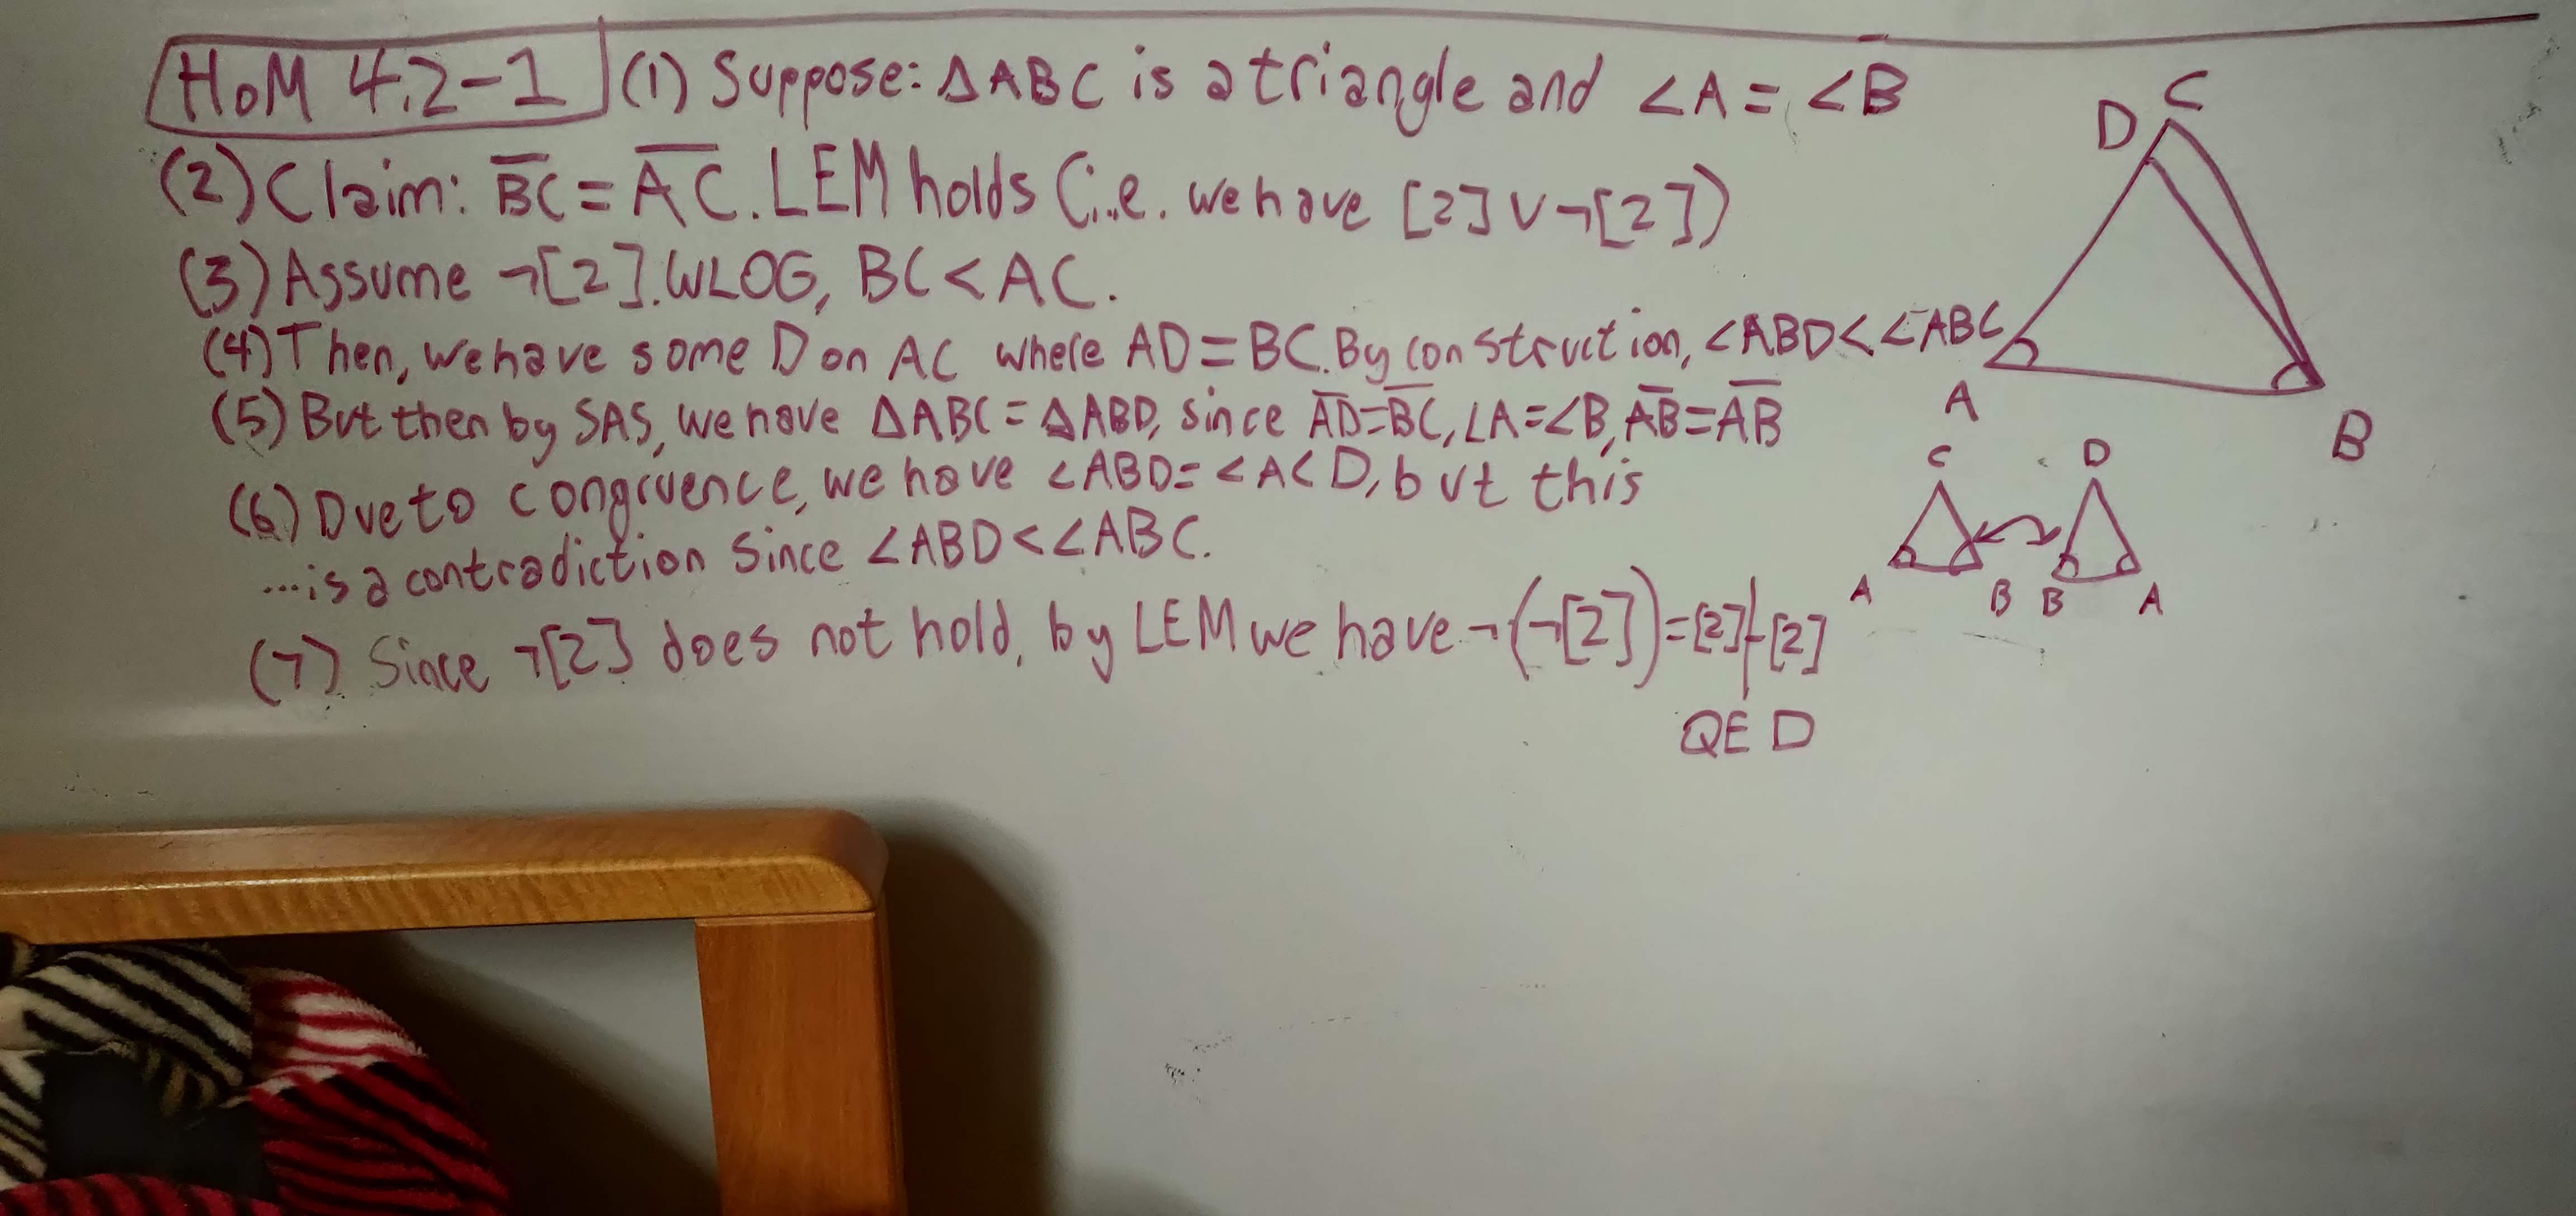 HoM 4.2-1 (1) Suppose: ΔABC is a triangle and ∠A = ∠B
(2) Claim: B̅C̅ = A̅C̅. LEM holds (i.e. we have [2] ∨ ¬[2])
(3) Assume ¬[2]. WLOG, BC < AC.
(4) Then, we have some D on AC where AD = BC. By construction, ∠ABD < ∠ABC
(5) But then by SAS, we have ΔABC = ΔABD, since A̅D̅ = B̅C̅, ∠A = ∠B, A̅B̅ = A̅B̅
(6) Due to congruence, we have ∠ABD = ∠ACD, but this
...is a contradiction since ∠ABD < ∠ABC.
(7) Since ¬[2] does not hold, by LEM we have ¬(¬[2]) = [2] ⊢ [2]
QED
D C
A B
C D
A B B A